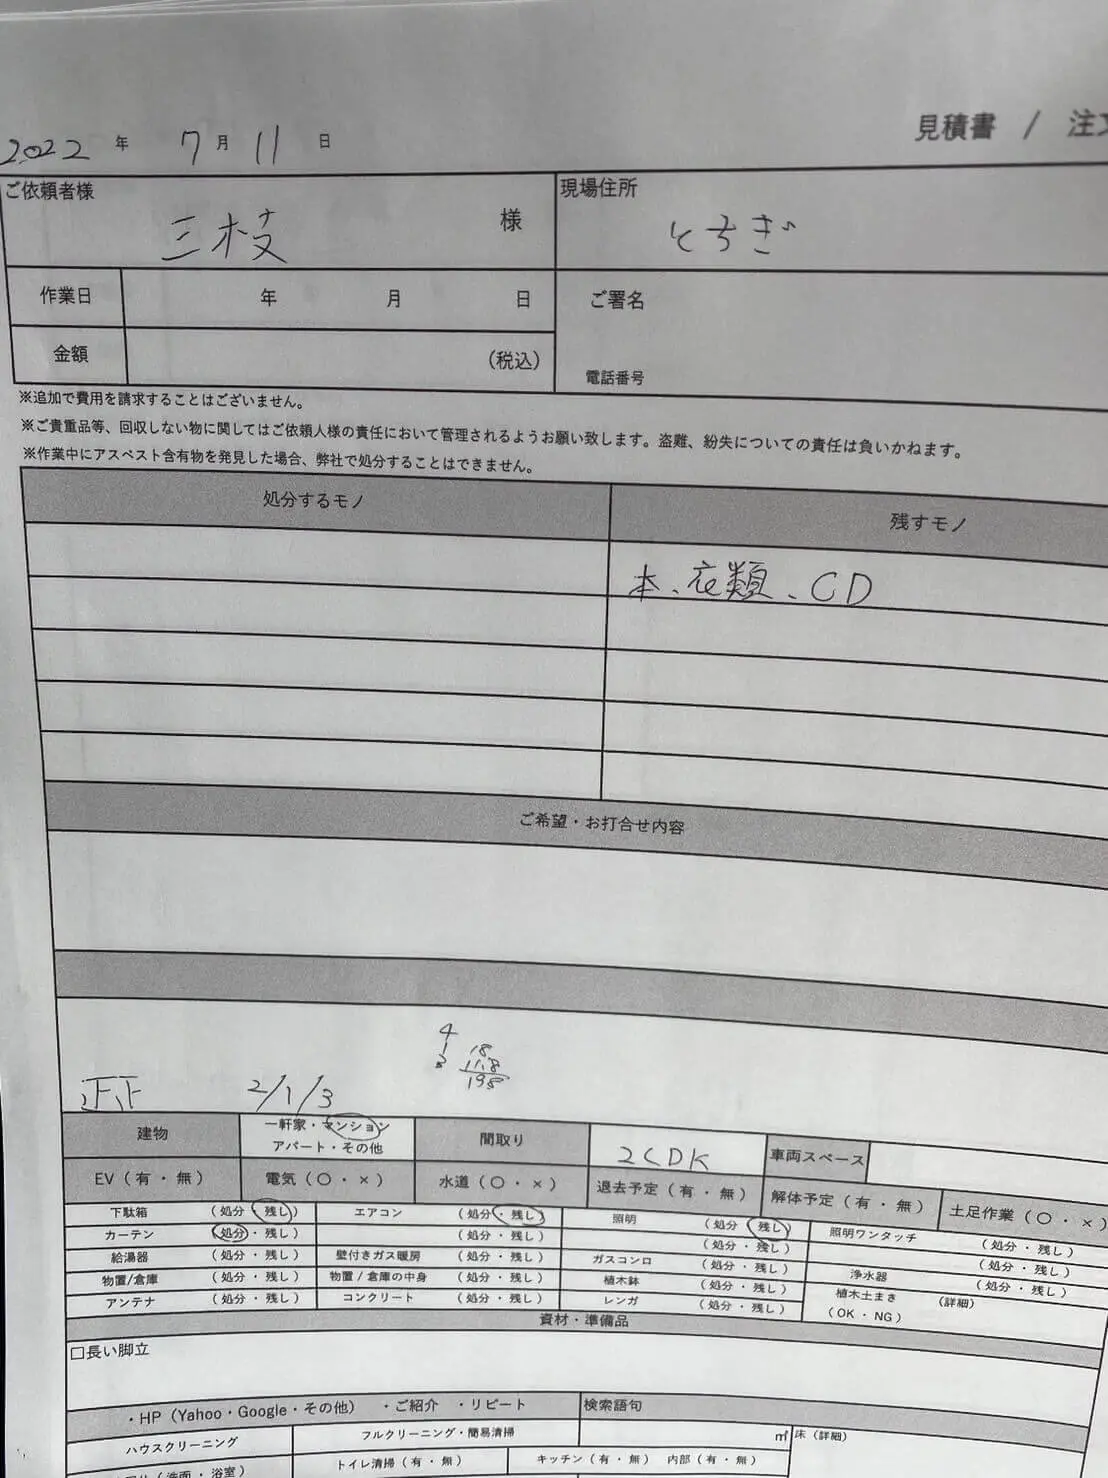 見積書 / 注文
2022 年 7 月 11 日
ご依頼者様 三枝 様
現場住所 とちぎ
作業日 年 月 日
ご署名
金額 (税込)
電話番号
※追加で費用を請求することはございません。
※ご貴重品等、回収しない物に関してはご依頼人様の責任において管理されるようお願い致します。盗難、紛失についての責任は負いかねます。
※作業中にアスベスト含有物を発見した場合、弊社で処分することはできません。
処分するモノ 残すモノ
本、衣類、CD
ご希望・お打合せ内容
4
1
3
18
11.8
198
正正 2/1/3
建物 一軒家・マンション
アパート・その他
間取り 2LDK 車両スペース
EV(有・無) 電気(〇・×) 水道(〇・×) 退去予定(有・無) 解体予定(有・無) 土足作業(〇・×)
下駄箱 (処分・残し) エアコン (処分・残し) 照明 (処分・残し) 照明ワンタッチ (処分・残し)
カーテン (処分・残し) (処分・残し) (処分・残し) (処分・残し)
給湯器 (処分・残し) 壁付きガス暖房 (処分・残し) ガスコンロ (処分・残し) 浄水器 (処分・残し)
物置/倉庫 (処分・残し) 物置/倉庫の中身 (処分・残し) 植木鉢 (処分・残し) 植木土まき (詳細)
アンテナ (処分・残し) コンクリート (処分・残し) レンガ (処分・残し) (OK・NG)
資材・準備品
□長い脚立
・HP(Yahoo・Google・その他) ・ご紹介 ・リピート 検索語句
ハウスクリーニング フルクリーニング・簡易清掃 ㎡ 床(詳細)
(洗面・浴室) トイレ清掃(有・無) キッチン(有・無) 内部(有・無)